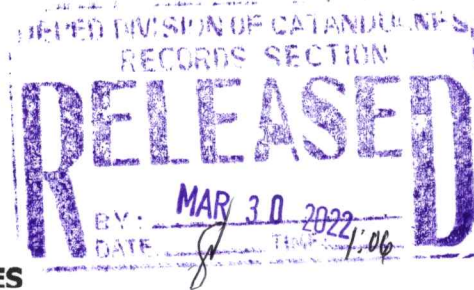 DEPED DIVISION OF CATANDUANES
RECORDS SECTION
RELEASED
MAR 30 2022
BY:
DATE TIME 1:06
ES